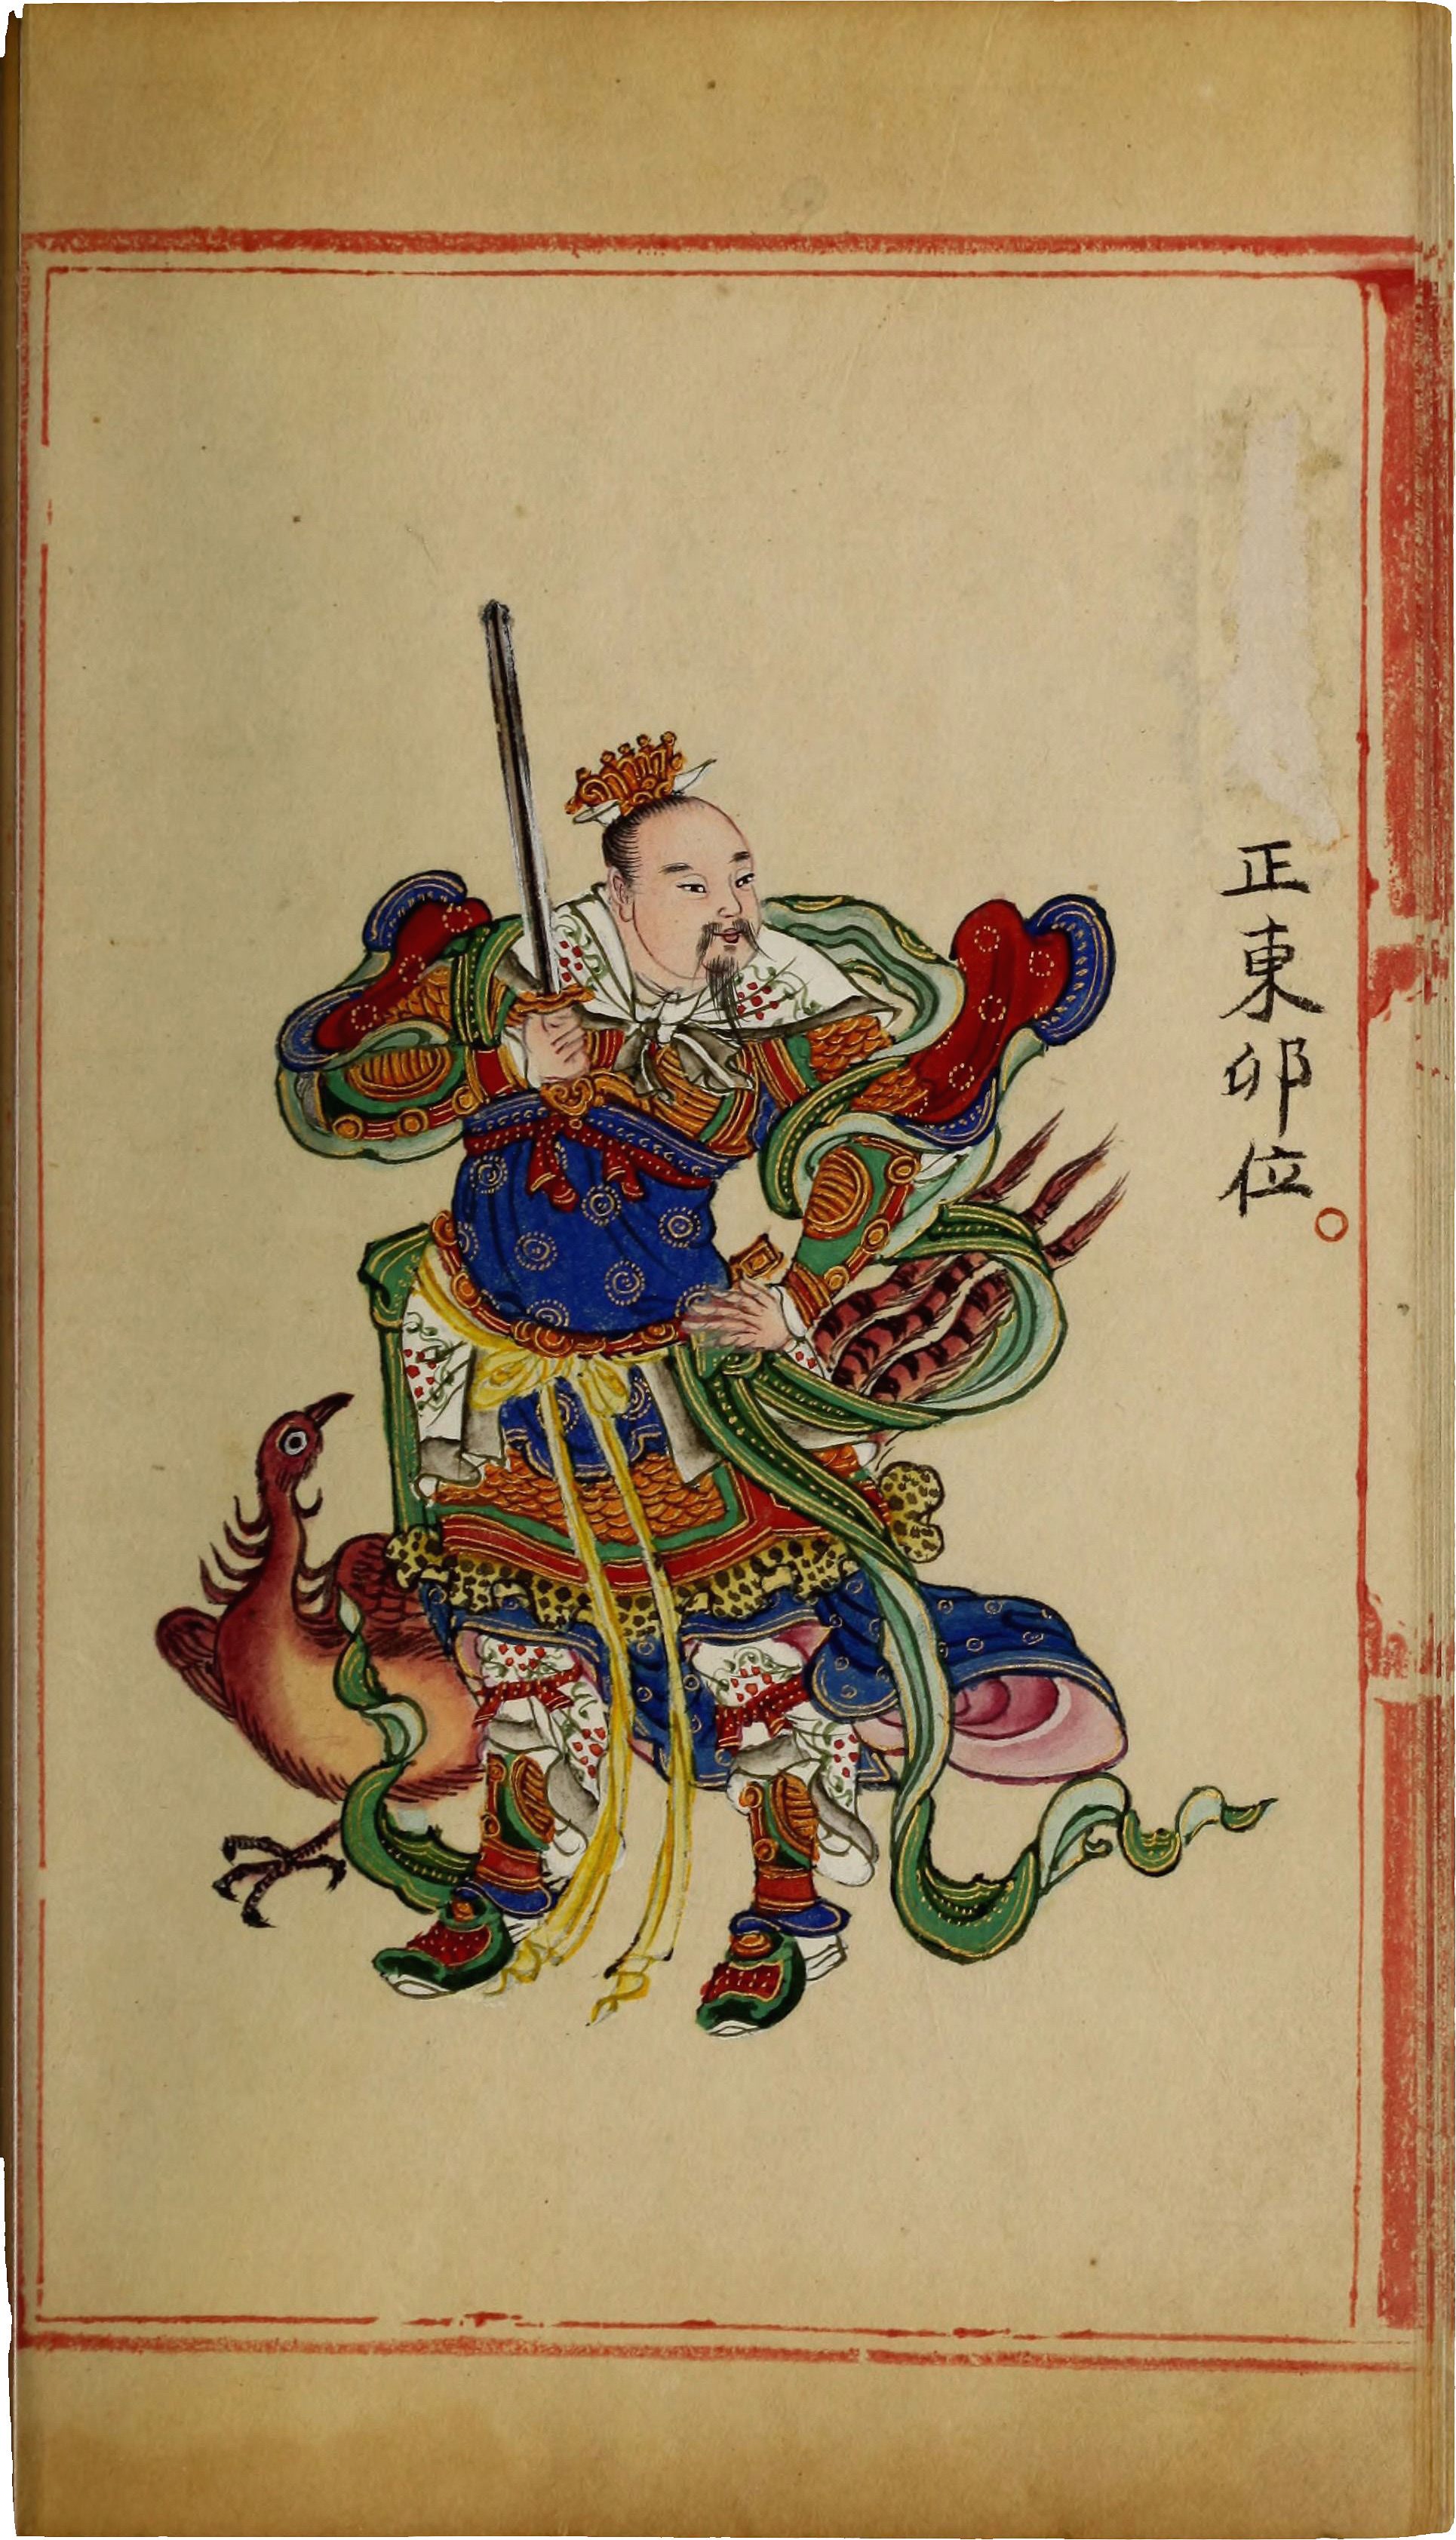 正東卯位